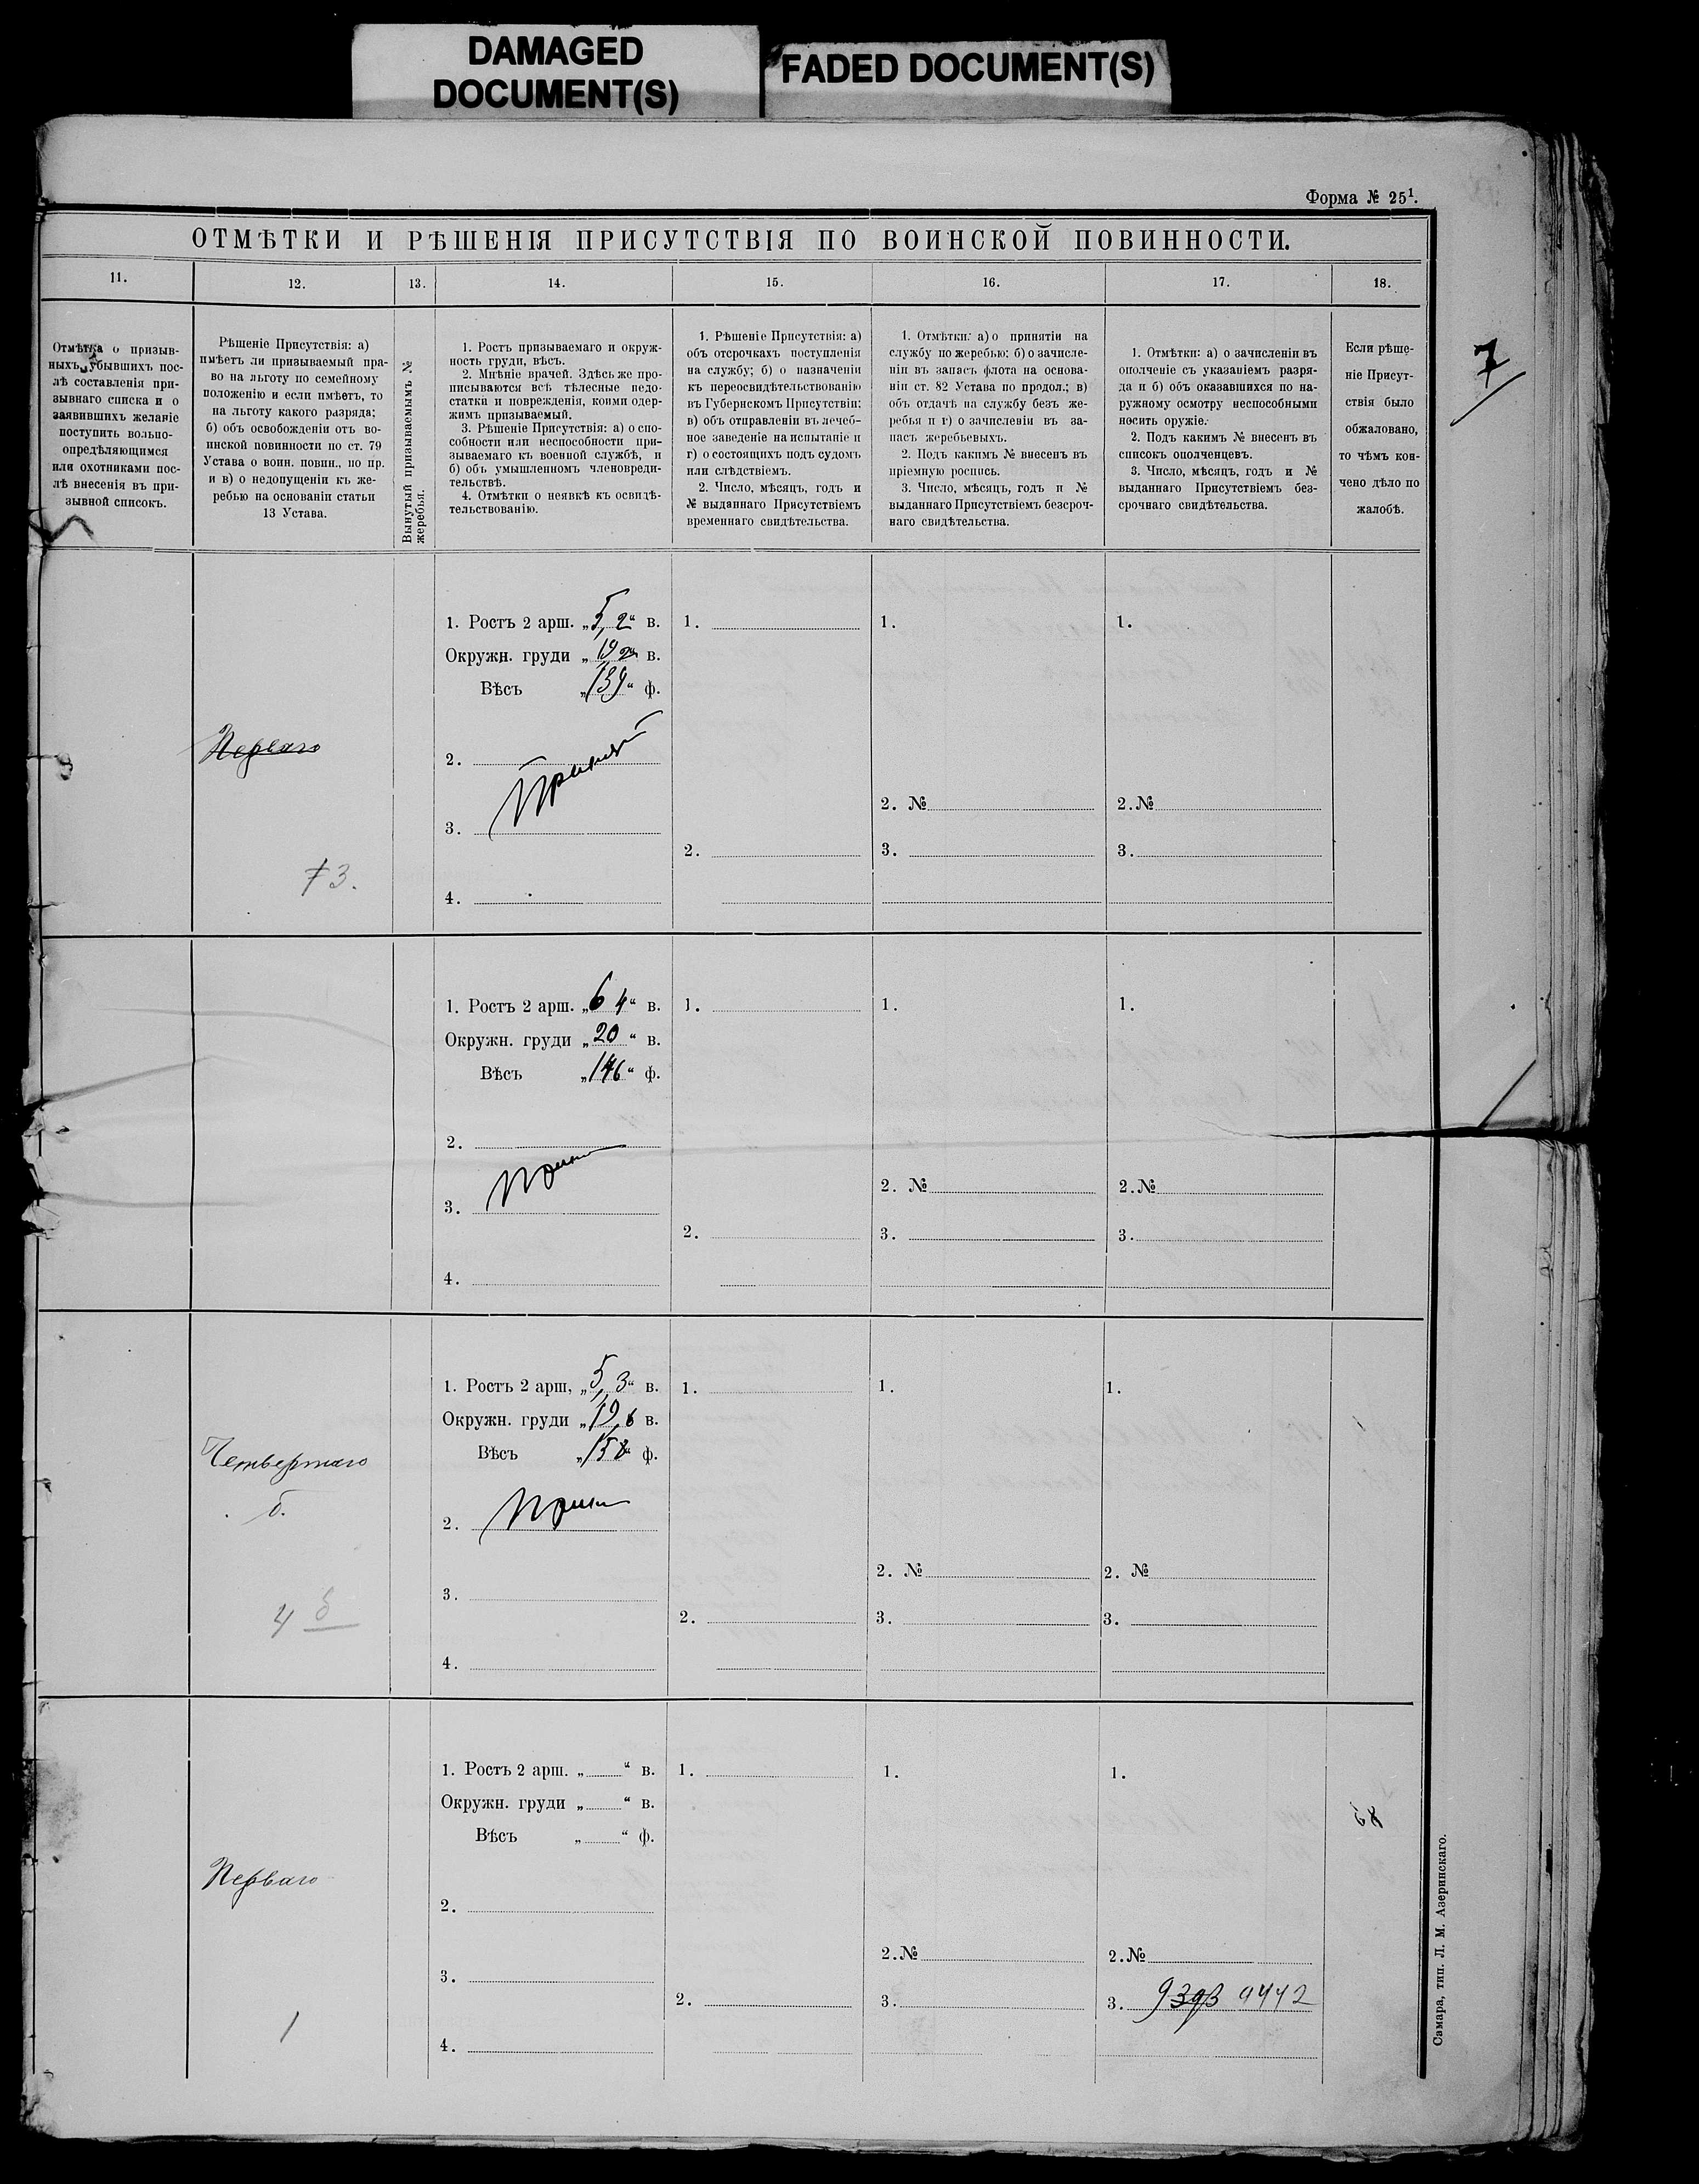 DAMAGED
DOCUMENT(S)
FADED DOCUMENT(S)
Форма № 25¹.
7
ОТМѢТКИ И РѢШЕНІЯ ПРИСУТСТВІЯ ПО ВОИНСКОЙ ПОВИННОСТИ.
11.
12.
13.
14.
15.
16.
17.
18.
Отмѣтка о призыв-
ныхъ, убывшихъ пос-
лѣ составленія при-
зывнаго списка и о
заявившихъ желаніе
поступить вольно-
опредѣляющимся
или охотниками пос-
лѣ внесенія въ при-
зывной списокъ.
Рѣшеніе Присутствія: а)
имѣетъ ли призываемый пра-
во на льготу по семейному
положенію и если имѣетъ, то
на льготу какого разряда;
б) объ освобожденіи отъ во-
инской повинности по ст. 79
Устава о воин. повин., по пр.
и в) о недопущеніи къ же-
ребью на основаніи статьи
13 Устава.
Вынутый призываемымъ №
жеребья.
1. Ростъ призываемаго и окруж-
ность груди, вѣсъ.
2. Мнѣніе врачей. Здѣсь же про-
писываются всѣ тѣлесные недо-
статки и поврежденія, коими одер-
жимъ призываемый.
3. Рѣшеніе Присутствія: а) о спо-
собности или неспособности при-
зываемаго къ военной службѣ, и
б) объ умышленномъ членовреди-
тельствѣ.
4. Отмѣтки о неявкѣ къ освидѣ-
тельствованію.
1. Рѣшеніе Присутствія: а)
объ отсрочкахъ поступленія
на службу; б) о назначеніи
къ переосвидѣтельствованію
въ Губернскомъ Присутствіи:
в) объ отправленіи въ лечеб-
ное заведеніе на испытаніе и
г) о состоящихъ подъ судомъ
или слѣдствіемъ.
2. Число, мѣсяцъ, годъ и
№ выданнаго Присутствіемъ
временнаго свидѣтельства.
1. Отмѣтки: а) о принятіи на
службу по жеребью: б) о зачисле-
ніи въ запасъ флота на основа-
ніи ст. 82 Устава по продол.; в)
объ отдачѣ на службу безъ же-
ребья и г) о зачисленіи въ за-
пасъ жеребьевыхъ.
2. Подъ какимъ № внесенъ въ
пріемную роспись.
3. Число, мѣсяцъ, годъ и №
выданнаго Присутствіемъ безсроч-
наго свидѣтельства.
1. Отмѣтки: а) о зачисленіи въ
ополченіе съ указаніемъ разря-
да и б) объ оказавшихся по на-
ружному осмотру неспособными
носить оружіе.
2. Подъ какимъ № внесенъ въ
списокъ ополченцевъ.
3. Число, мѣсяцъ, годъ и №
выданнаго Присутствіемъ без-
срочнаго свидѣтельства.
Если рѣше-
ніе Присут-
ствія было
обжаловано,
то чѣмъ кон-
чено дѣло по
жалобѣ.
Перваго
3.
1. Ростъ 2 арш. „5,2“ в.
Окружн. груди „19 “ в.
Вѣсъ „139“ ф.
2.
3.
4.
1.
2.
1.
2. №
3.
1.
2. №
3.
1. Ростъ 2 арш. „6 4“ в.
Окружн. груди „20“ в.
Вѣсъ „146“ ф.
2.
3.
4.
1.
2.
1.
2. №
3.
1.
2. №
3.
Четвертаго
б.
4 б
1. Ростъ 2 арш, „5,3“ в.
Окружн. груди „19,6 в.
Вѣсъ „158“ ф.
2.
3.
4.
1.
2.
1.
2. №
3.
1.
2. №
3.
Перваго
1
1. Ростъ 2 арш. „ “ в.
Окружн. груди „ “ в.
Вѣсъ „ “ ф.
2.
3.
4.
1.
2.
1.
2. №
3.
1.
2. №
3. 9442
Самара, тип. Л. М. Азеринскаго.